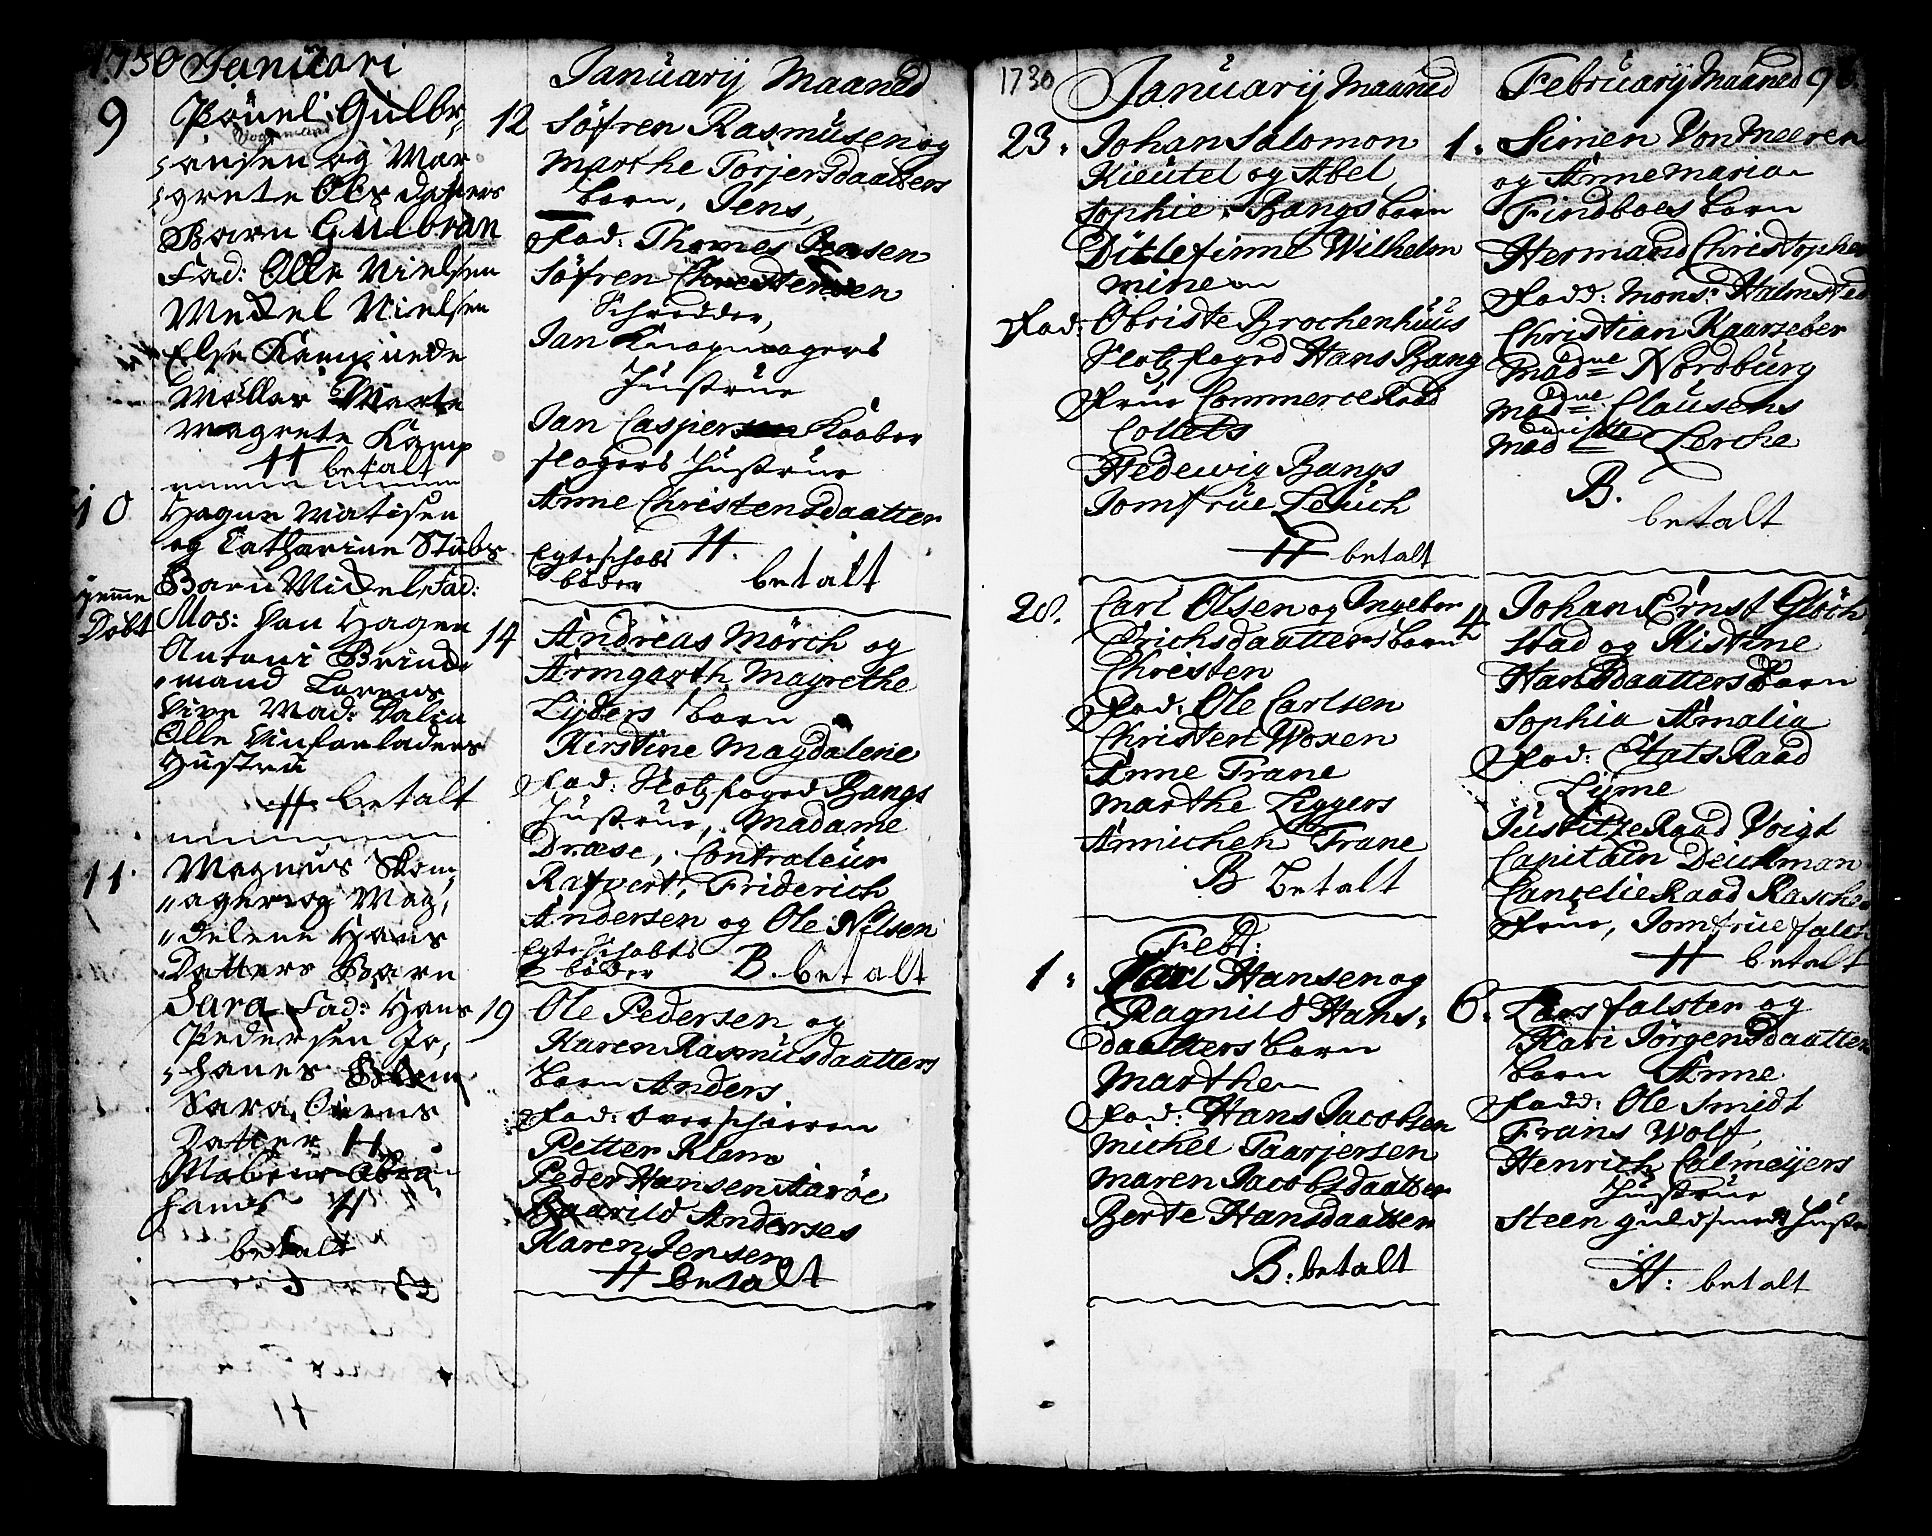 1730 Januari
9 Pouel Gulbr,
ansen og Mar
grete Ols datters
Barn Gulbran
Fad: Olle Nielsen
Mekel Nielsen
Else
Møller Marte
Magrete Kamp
H betalt
10 Hagen Matisen
og Catharine Stubs
Barn Mickel, Fad:
hjemme
Døbt
Mos: Van Hagen
Antoni Brinck
mand Lorens
Mad:
Olle
Hustru
H. betalt
11. Magnus Skom,
agers og Mag,
delene Hans
Datters Barn
Sara Fad: Hans
Pedersen Jo,
hanes
Sara, Ovens
Datter H
H
betalt
Januarij Maaned
12 Søfren Rasmusen og
Marthe Torjersdaatters
barn, Jens,
Fad: Thomes Jensen
Søfren Christensen
Schredder,
Jan Knapmagers
Hustrue
Jan Caspersen Kaaber
slagers Hustrue
Anne Christensdaatter
Egteschabs H.
bøder betalt
14 Andreas Mörch og
Armgarth Magrethe
Lyders barn
Kirstine Magdalene
Fad: Slotz foged Bangs
Hustrue, Madame
Dræse, Contraleur
Rafvert, Friderich
Andersen og Ole Nilsen
Egteschabts
bøder B. betalt
19 Ole Pedersen og
Karen Rasmusdaatters
barn Anders
Fad: Overschieren
Petter Klam
Peder Hansen Aaröe
Baarild Anderses
Karen Jensen
H betalt
1730 Januarij Maaned
23. Johan Salomon
Kieutel og Abel
Sophie Bangs barn
Ditlefinne Wilhelm
mine
Fad: Obriste Brochenhuus
Slotz foged Hans Bang
Frue CommerceRaad
Collets
Hedewig Bangs
Jomfrue Leuch
H betalt
28. Carl Olsen og Ingebor
Erichsdaatters barn
Christen
Fad: Ole Carlsen
Christen Woxen
Anne Trane
Marthe Leggers
Annichen Trane
B betalt
Feb:
1. Carl Hansen og
Ragnild Hans,
daatters barn
Marthe
Fad: Hans Jacobsen
Michel Taarjersen
Maren Jacobsdaatter
Berte Hansdaatter
B: betalt
Februarij Maaned 96.
1. Simen Von Meeren
og Anne Maria
Findboes barn
Hermand Christopher
Fadd: Mons: Halmsted
Christian Kaarseber
Madme Nordburg
Madme Clausens
Mad Lerche
B.
betalt
4 Johan Ernst Glöch
stad og Kistine
Hansdaatters barn
Sophia Amalia
Fad: EtatsRaad
Lyme
JustitzeRaad Voigt
Capitain Deichman
CancelieRaad Rasches
Frue, Jomfrue falch
H betalt
6. Lars falster og
Kari Jörgensdaatters
barn Anne
Fadd: Ole Smidt
Frans Wolff,
Henrich Calmeijers
Hustrue
Steen guldsmed Hustr
H: betalt